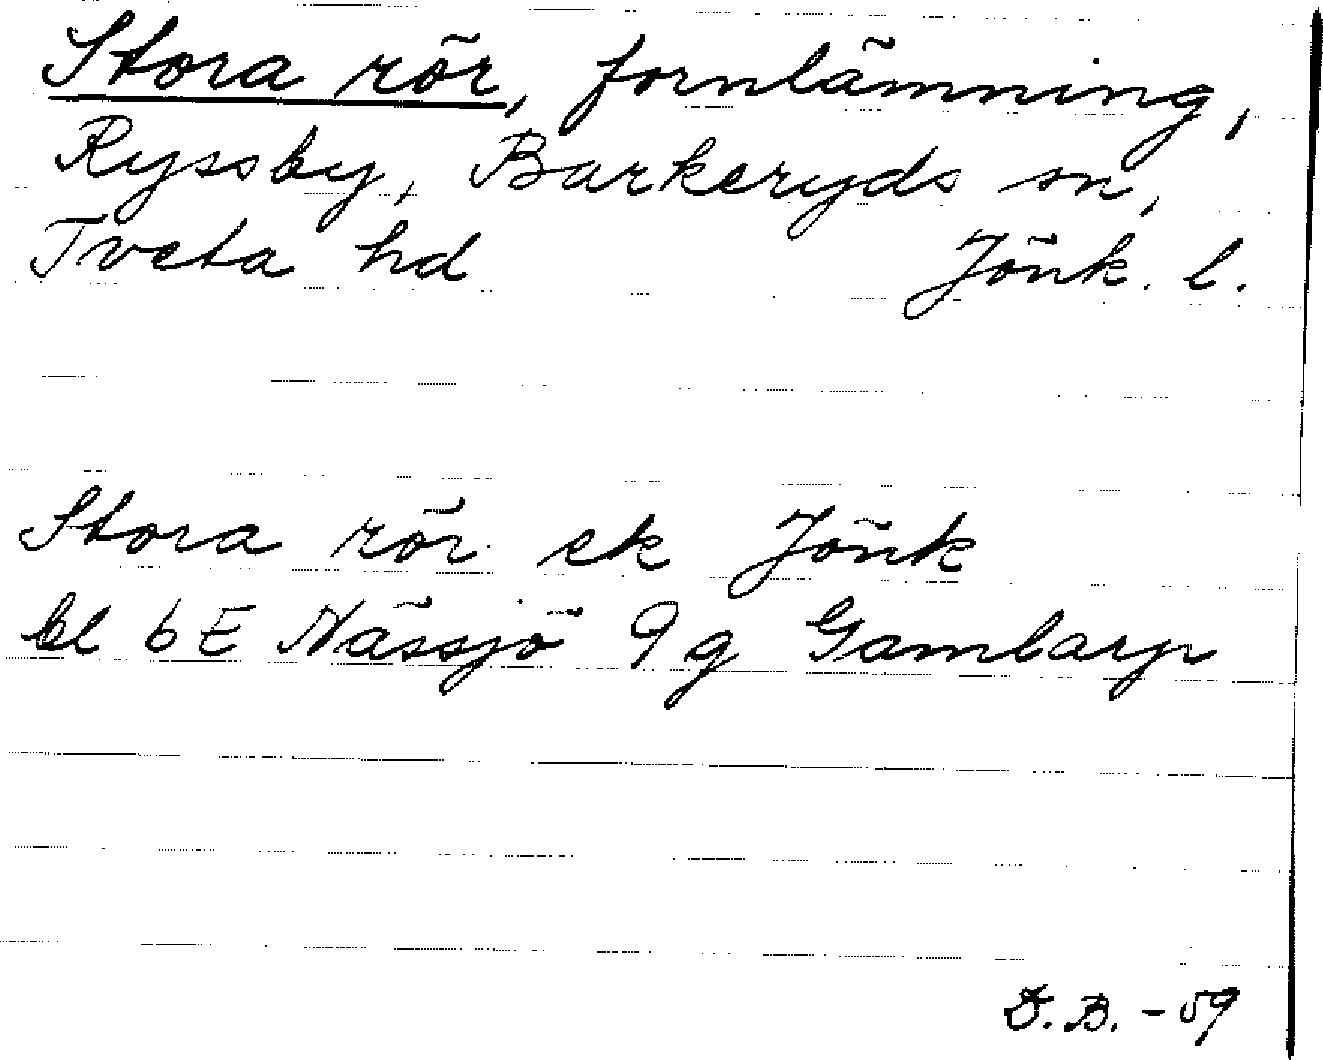 Stora rör, fornlämning,
Ryssby, Barkeryds sn,
Tveta hd Jönk. l.
Stora rör ek Jönk
bl 6E Nässjö 9g Gamlarp
B. -59